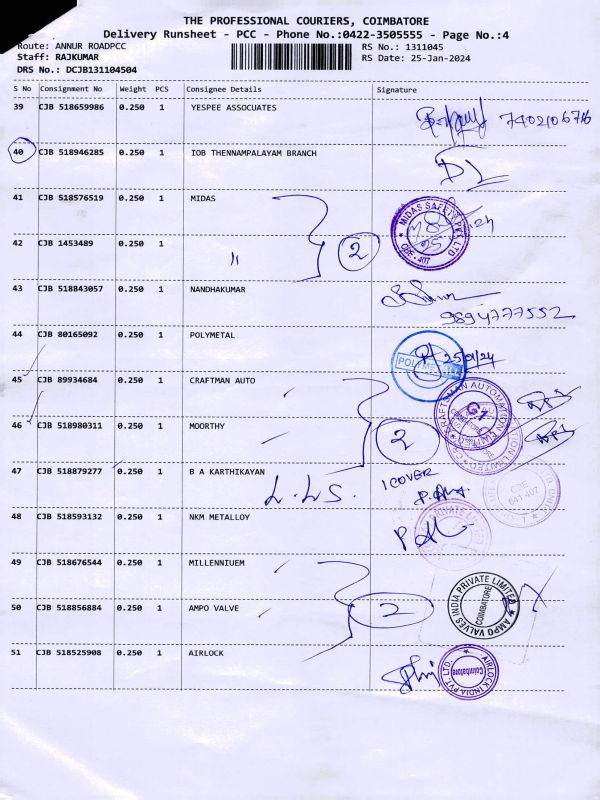 THE PROFESSIONAL COURIERS, COIMBATORE
Delivery Runsheet - PCC - Phone No.:0422-3505555 - Page No.:4
Route: ANNUR ROADPCC
RS No.: 1311045
Staff: RAJKUMAR
RS Date: 25-Jan-2024
DRS No.: DCJB131104504
S No Consignment No Weight PCS Consignee Details Signature
39 CJB 518659986 0.250 1 YESPEE ASSOCIATES
7402106716
40 CJB 518946285 0.250 1 IOB THENNAMPALAYAM BRANCH
41 CJB 518576519 0.250 1 MIDAS
MIDAS SAFETY PVT LTD
CBE - 407
42 CJB 1453489 0.250 1 " 2
43 CJB 518843057 0.250 1 NANDHAKUMAR
9894777552
44 CJB 80165092 0.250 1 POLYMETAL
25/01/24
45 CJB 89934684 0.250 1 CRAFTMAN AUTO
46 CJB 518980311 0.250 1 MOORTHY 2
47 CJB 518879277 0.250 1 B A KARTHIKAYAN
1 COVER
L.L.S.
CBE
641 407
48 CJB 518593132 0.250 1 NKM METALLOY
49 CJB 518676544 0.250 1 MILLENNIUEM
50 CJB 518856884 0.250 1 AMPO VALVE 2
AMPO VALVES INDIA PRIVATE LIMITED
COIMBATORE
51 CJB 518525908 0.250 1 AIRLOCK
AIRLOCK INDIA PVT. LTD.
Coimbatore